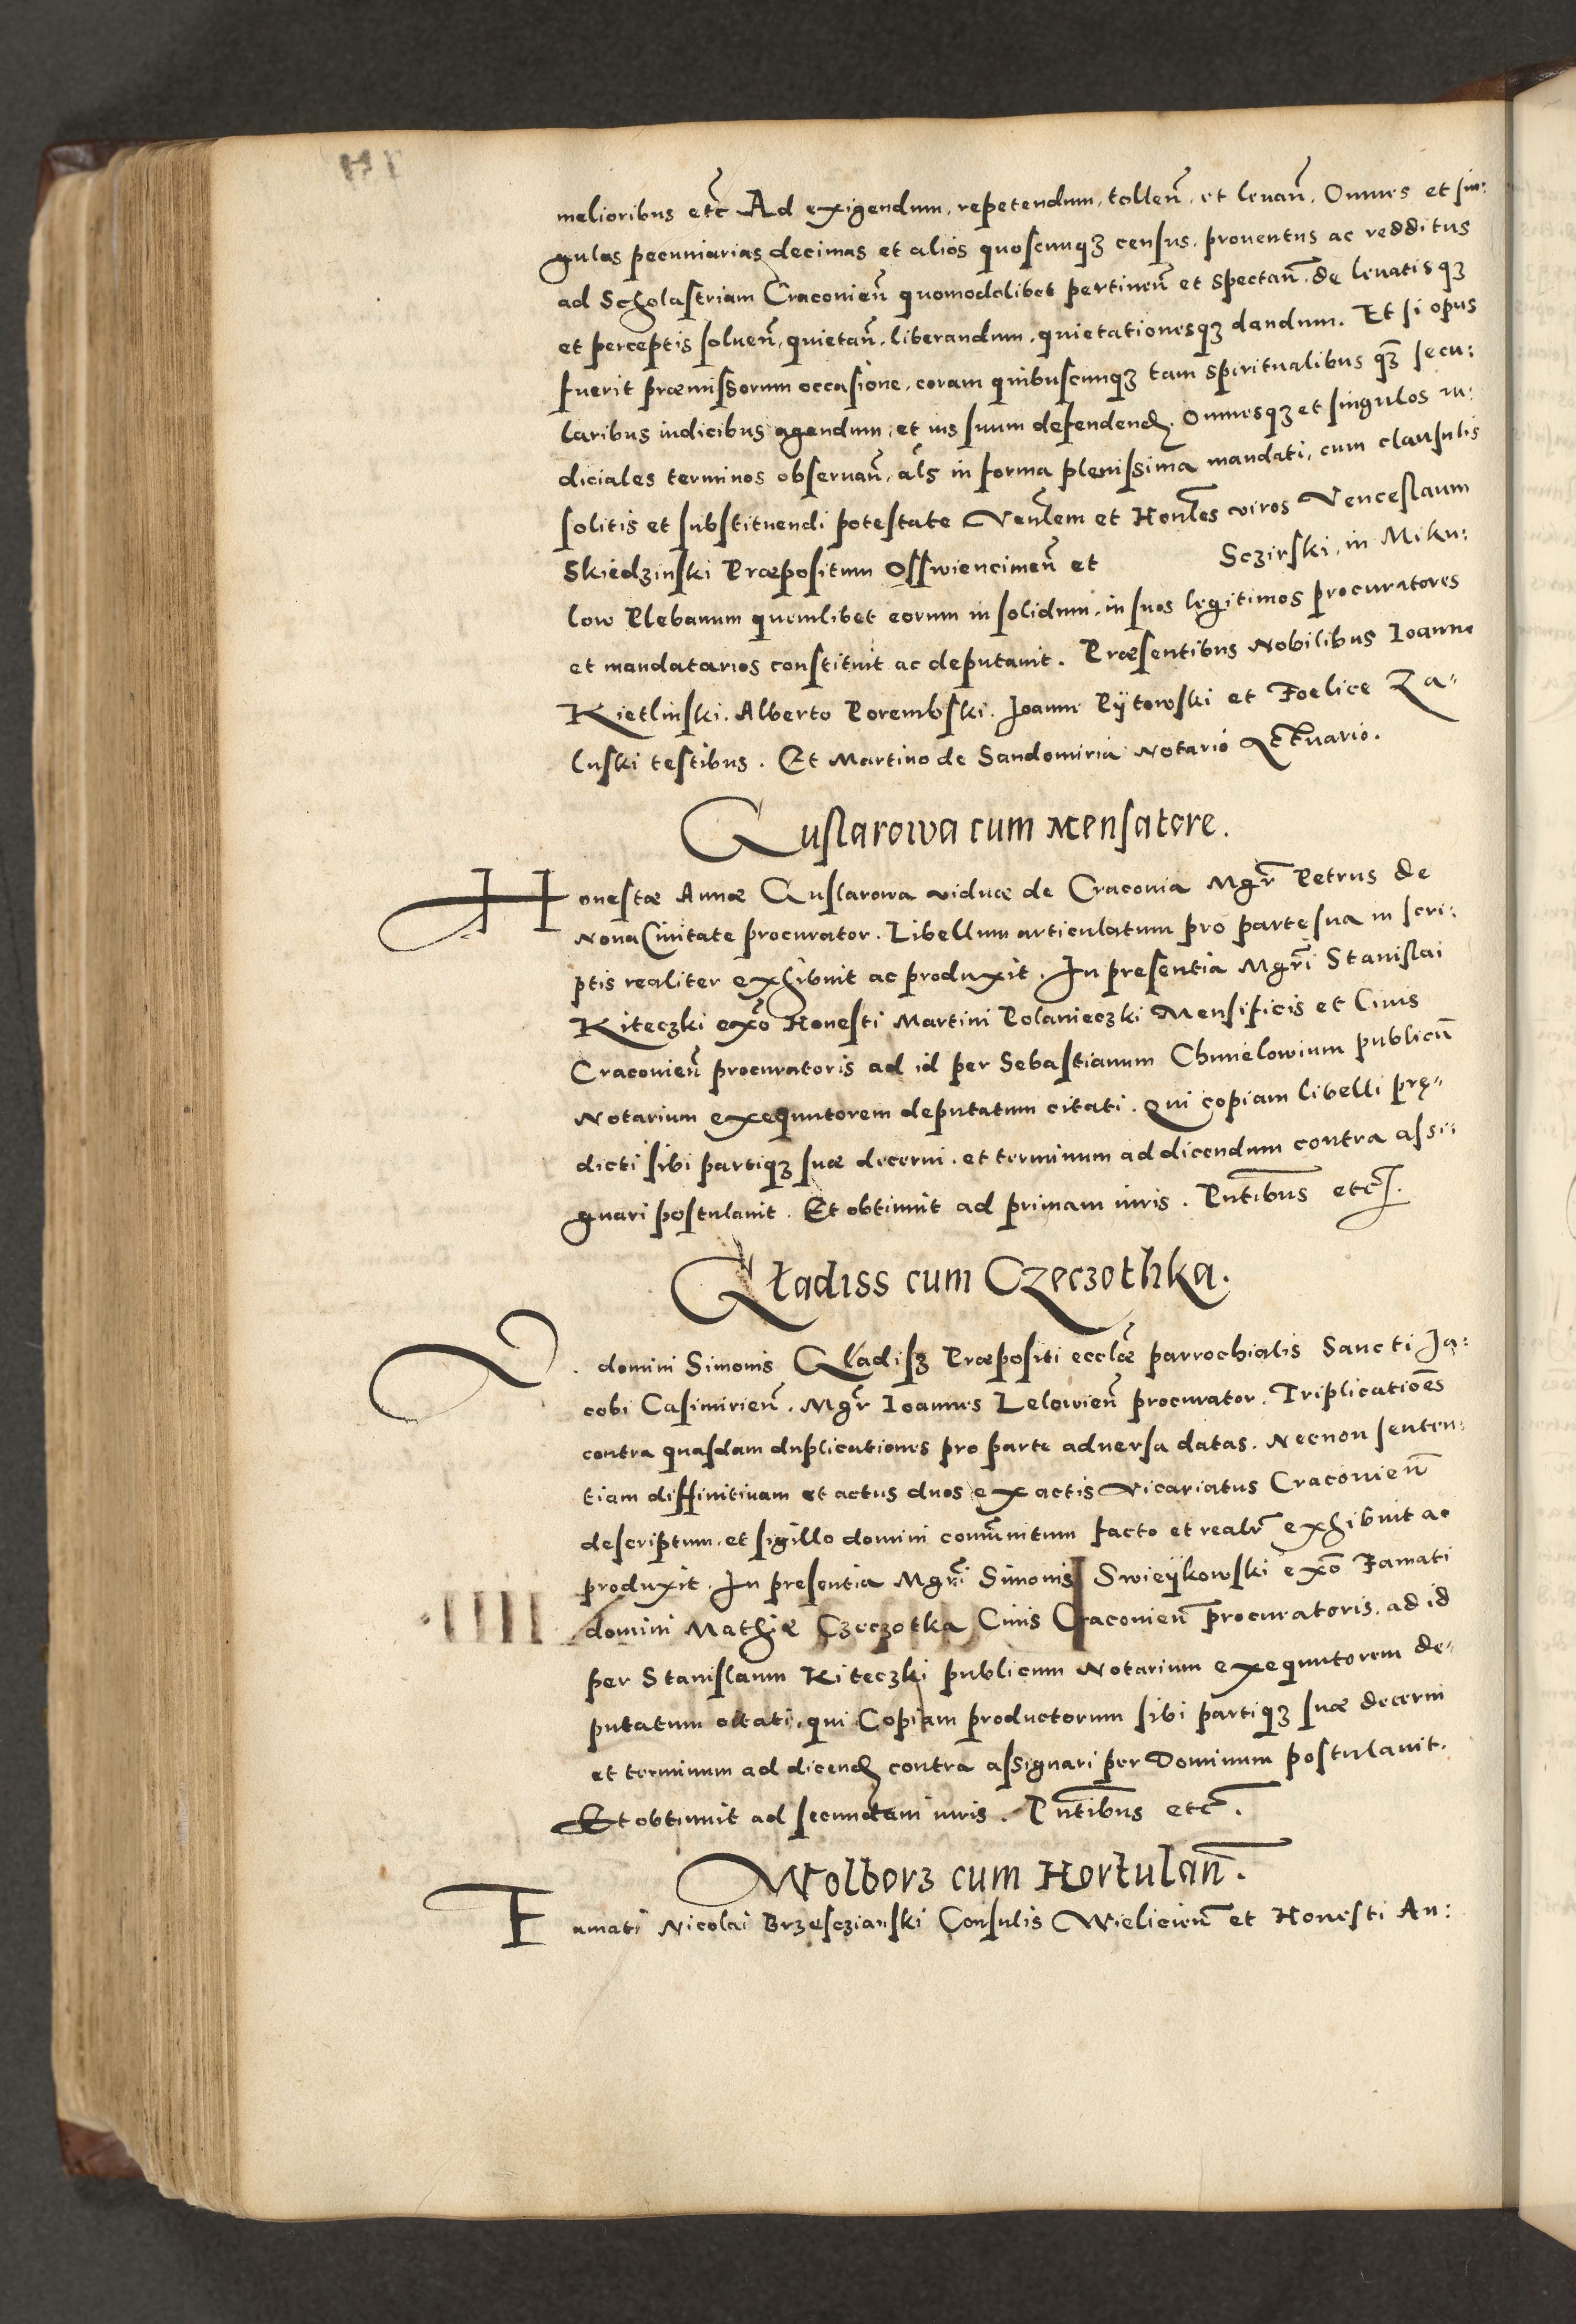 melioribus etc̃ Ad exigendum, repetendum, tolleñ, et levañ. Omnes et sin:
gulas pecuniarias decimas et alios quoscunqꝫ census, proventus ac redditus
ad Scholastriam Cracovieñ quomodolibet pertineñ et spectañ. de levatisqꝫ
et perceptis solveñ, quietañ, liberandum, quietationesqꝫ dandum. Et si opus
fuerit præmissorum occasione, coram quibuscunqꝫ tam spiritualibus qꝫ̃ secu:
laribus iudicibus agendum, et ius suum defendend. Omnesqꝫ et singulos iu:
diciales terminos observañ, als in forma plenissima mandati, cum clausulis
solitis et substituendi potestate Veñlem et Hoñles viros Venceslaum
Skiedzinski Præpositum Osswiencimeñ et Sczirski, in Miku:
low Plebanum quemlibet eorum in solidum, in suos legitimos procuratores
et mandatarios constituit ac deputavit. Præsentibus Nobilibus Ioanne
Kietlinski. Alberto Porembski. Joanne Pÿtowski et Foelice Za⸗
luski testibus. Et Martino de Sandomiria Notario Actuario.
Guslarowa cum Mensatore.
Honestæ Annæ Guslarowa viduæ de Cracovia Mgr̃ Petrus de
Nova Civitate procurator. Libellum articulatum pro parte sua in scri:
ptis realiter exhibuit ac produxit. In presentia Mgr̃i Stanislai
Kiteczki ex̃o Honesti Martini Polanieczki Mensificis et Civis
Cracovieñ procuratoris ad id per Sebastianum Chmielowium publicũ
Notarium exequutorem deputatum citati. Qui copiam libelli prę⸗
dicti sibi partiqꝫ suæ decerni, et terminum ad dicendum contra assi:
gnari postulavit. Et obtinuit ad primam iuris. Pñtibus etc̃.
Gładiss cum Czeczothka.
V. domini Simonis Gładisz Præpositi eccl̃æ parrochialis Sancti Ja:
cobi Casimirieñ. Mgr̃ Ioannes Lelowieñ procurator. Triplicatioẽs
contra quasdam duplicationes pro parte adversa datas. Necnon senten:
tiam diffinitivam et actus duos ex actis Vicariatus Cracovieñ
descriptum, et sigillo domini com̃unitum facto et realr̃ exhibuit ac
produxit. In presentia Mgr̃i Simonis Swieÿkowski ex̃o Famati
domini Mathiæ Czeczotka Civis Cracovieñ procuratoris, ad id
per Stanislaum Kiteczki publicum Notarium exequutorem de⸗
putatum citati, qui Copiam productorum sibi partiqꝫ suæ decerni
et terminum ad dicend contra assignari per Dominum postulavit.
Et obtinuit ad secundam iuris. Pñtibus etc̃.
Wolborz cum Hortulañ.
Famati Nicolai Brzesczianski Consulis Wielicieñ et Honesti An: